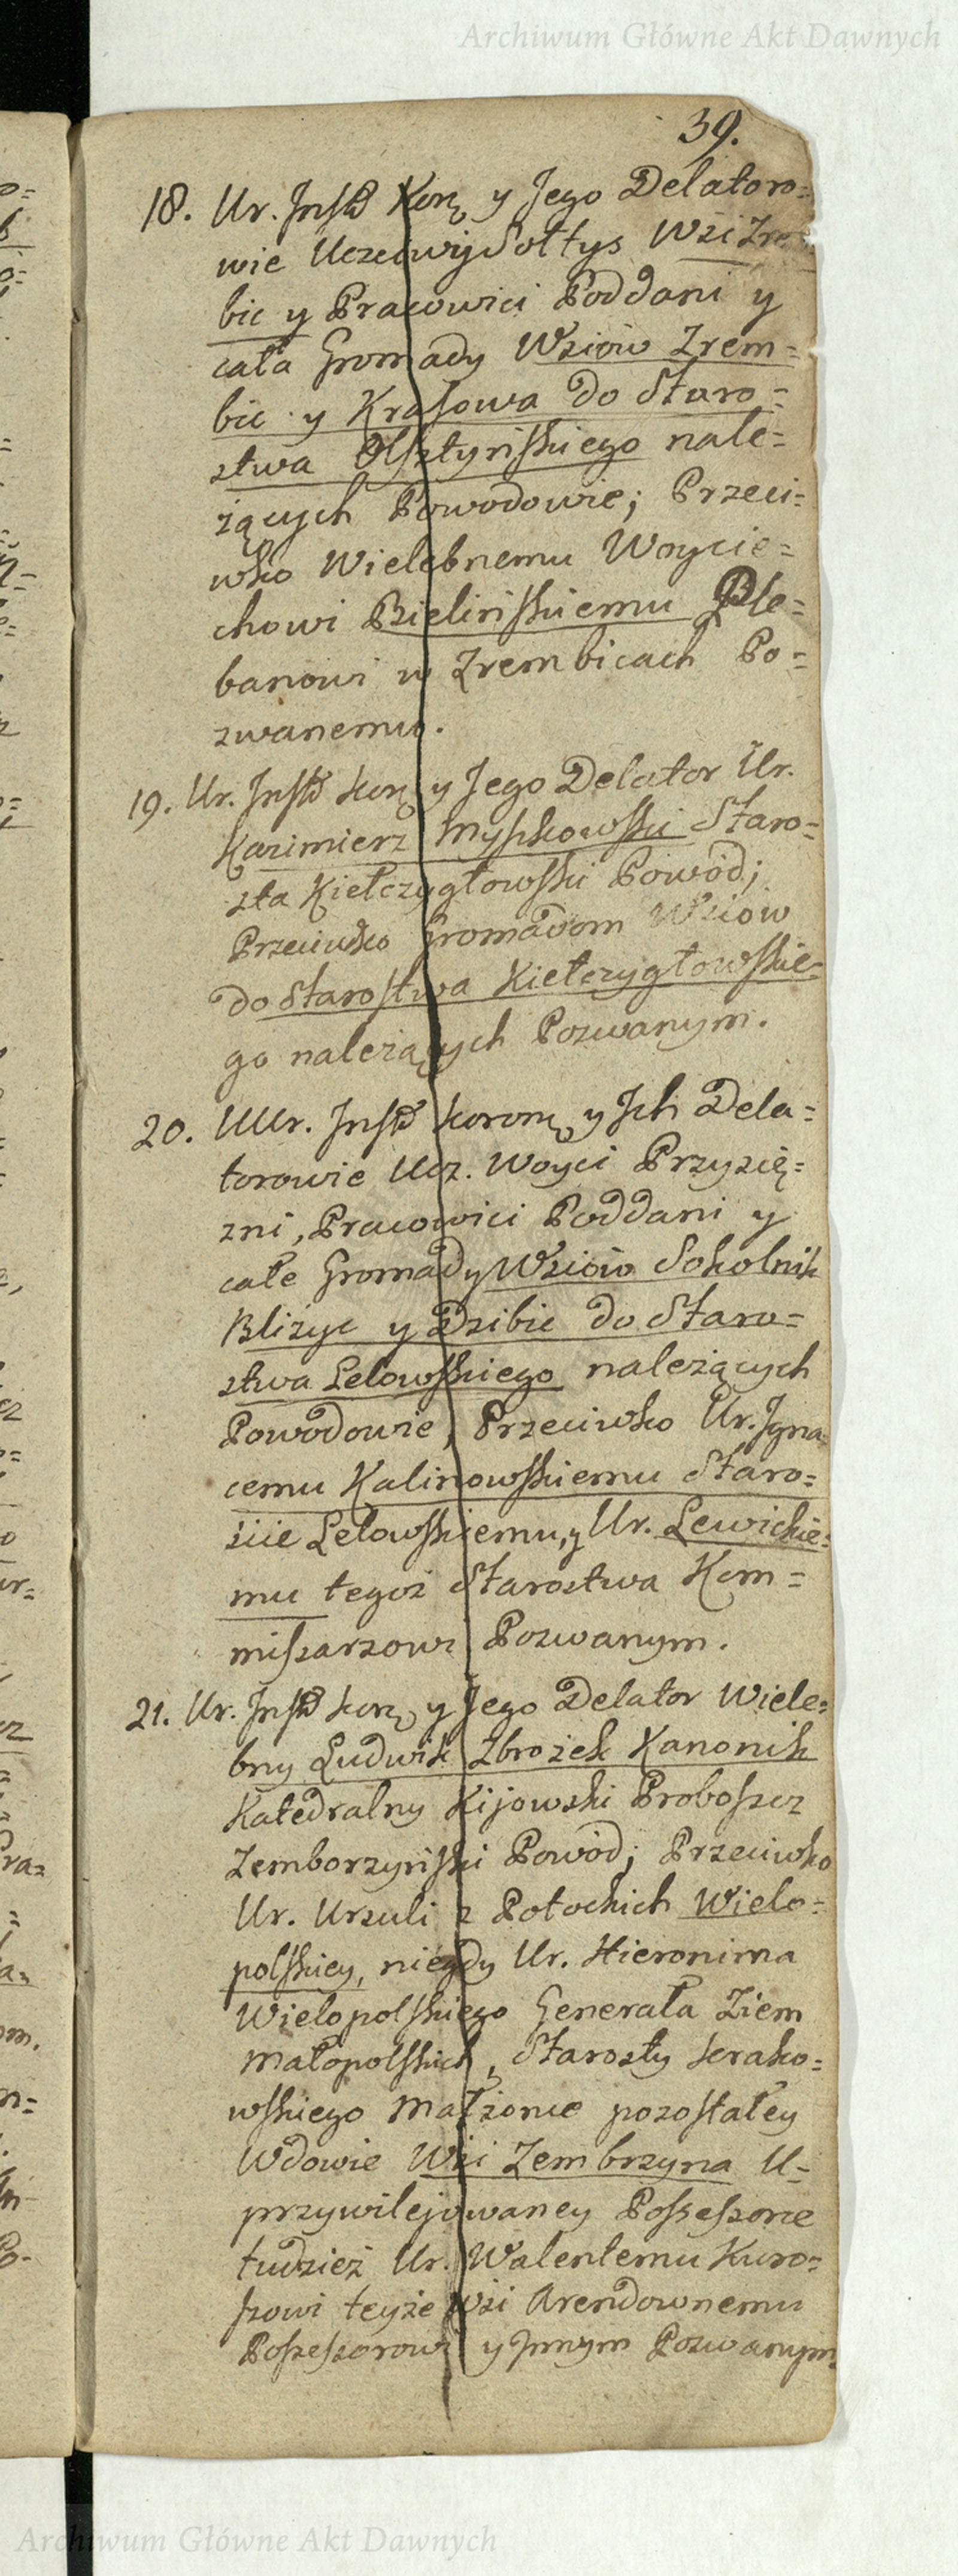 Archiwum Główne Akt Dawnych
39.
18. Ur. Inst Korę y Jego Delatoro=
wie Uczciwy Sołtys Wsi Zre
bic y Pracowici Poddani y
cała Gromady Wsiow Zrem=
bic y Krasowa do Staro=
stwa Olsztyńskiego nale=
żących Powodowie; Przeci=
wko Wielebnemu Woycie=
chowi Bielińskiemu Ple=
banowi w Zrembicach Po=
zwanemu.
19. Ur. Inst Korę y Jego Delator Ur.
Kazimierz Myszkowski Staro=
sta Kiełczygłowski Powód;
Przeciwko Gromadom Wsiow
do Starostwa Kiełczygłowskie=
go należących Pozwanym.
20. UUr. Inst Koronę y Ich Dela=
torowie Ucz. Woyci Przysię=
zni, Pracowici Poddani y
całe Gromady Wsiow Sokolnik
Bliżyc y Dzibic do Staro=
stwa Lelowskiego należących
Powodowie, Przeciwko Ur. Igna=
cemu Kalinowskiemu Staro=
ście Lelowskiemu, y Ur. Lewickie=
mu tegoż Starostwa Kom=
missarzowi Pozwanym.
21. Ur. Inst Korę y Jego Delator Wiele=
bny Ludwik Zbrożek Kanonik
Katedralny Kijowski Proboszcz
Zemborzyński Powód; Przeciwko
Ur. Urszuli z Potockich Wielo=
polskiey, niegdy Ur. Hieronima
Wielopolskiego Generała Ziem
Małopolskich, Starosty Krako=
wskiego Małżonce pozostałey
Wdowie Wsi Zembrzyna U=
przywilejowaney Possessorce
tudzież Ur. Walentemu Kuro=
szowi teyże Wsi Arendownemu
Possessorowi y Innym Pozwanym.
Archiwum Główne Akt Dawnych